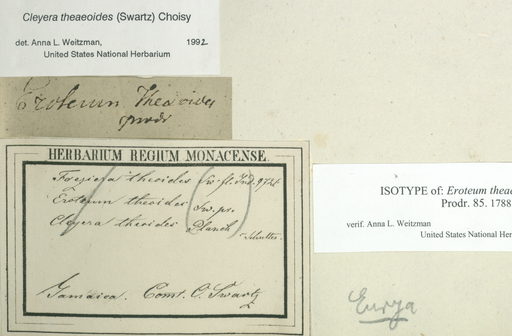 Cleyera theaeoides (Swartz) Choisy
det. Anna L. Weitzman, 1992
United States National Herbarium
Eroteum theaeoides
prodr
HERBARIUM REGIUM MONACENSE.
Freziera theoides Sw. fl. Ind. 972.
Eroteum theoides Sw. pr.
Cleyera theoides Planch
Jamaica. Com. O. Swartz
ISOTYPE of: Eroteum theae
Prodr. 85. 1788
verif. Anna L. Weitzman
United States National Her
Eurya